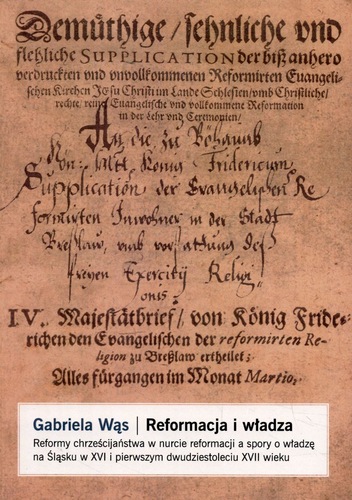 Demüthige / sehnliche vnd
flehliche SUPPLICATION der biß anhero
verdruckten vnd vnvollkommenen Reformirten Euangeli-
schen Kirchen JEsu Christi im Lande Schlesien / vmb Christliche /
rechte / reine Euangelische vnd vollkommene Reformation
in der Lehr vnd Ceremonien /
An die zu
König Fridericum
Supplication der Evangelischen Re
formirten Inwohner in der Stadt
Breslaw, vmb verstattung deß
freyen Exercitij Religi
onis
IV. Majestätbrief / von König Fride-
richen den Evangelischen der reformirten Re-
ligion zu Breßlaw ertheilet;
Alles fürgangen im Monat Martio.
Gabriela Wąs | Reformacja i władza
Reformy chrześcijaństwa w nurcie reformacji a spory o władzę
na Śląsku w XVI i pierwszym dwudziestoleciu XVII wieku